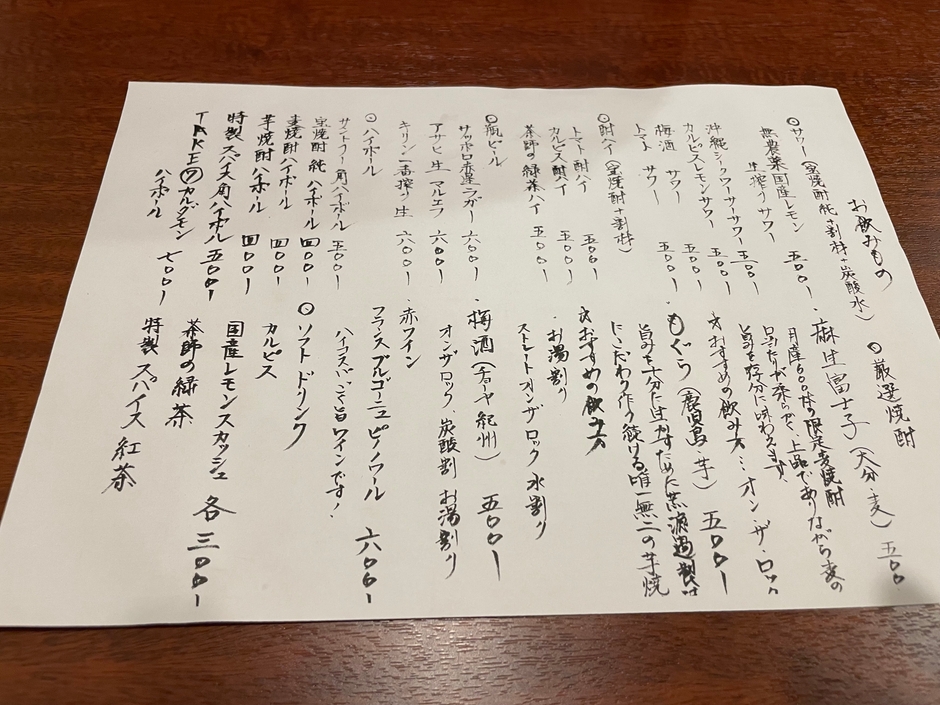 お飲みもの
◎サワー(宝焼酎純+割材+炭酸水)
無農薬国産レモン
生搾りサワー 五〇〇
沖縄シークワーサーサワー 五〇〇ー
カルピスレモンサワー 五〇〇ー
梅酒 サワー 五〇〇ー
トマト サワー 五〇〇ー
◎酎ハイ(宝焼酎+割材)
トマト酎ハイ 五〇〇ー
カルピス酎ハイ 五〇〇ー
茶師の緑茶ハイ 五〇〇ー
◎瓶ビール
サッポロ赤星ラガー 六〇〇ー
アサヒ 生 マルエフ 六〇〇ー
キリン 一番搾り 生 六〇〇ー
◎ハイボール
サントリー角ハイボール 五〇〇ー
宝焼酎 純 ハイボール 四〇〇ー
麦焼酎ハイボール 四〇〇ー
芋焼酎ハイボール 四〇〇ー
特製スパイス角ハイボール 五〇〇ー
TAKEのカルダモン
ハイボール 七〇〇ー
◎厳選焼酎
・麻生富士子(大分・麦) 五〇〇
月産600本の限定麦焼酎
口当たりが柔らかく、上品でありながら麦の
旨みを存分に味わえます。
☆おすすめの飲み方…オン・ザ・ロック
・もぐら(鹿児島・芋) 五〇〇ー
旨みを十分に生かすために荒濾過製法
にこだわり作り続ける唯一無二の芋焼
☆おすすめの飲み方
ストレート オンザロック 水割り
お湯割り
・梅酒(チョーヤ 紀州) 五〇〇ー
オンザロック、炭酸割 お湯割り
・赤ワイン
フランス ブルゴーニュ ピノノワール 六〇〇ー
ハイコスパ 旨ワインです!
◎ソフトドリンク
カルピス
国産レモンスカッシュ 各三〇〇ー
茶師の緑茶
特製 スパイス 紅茶